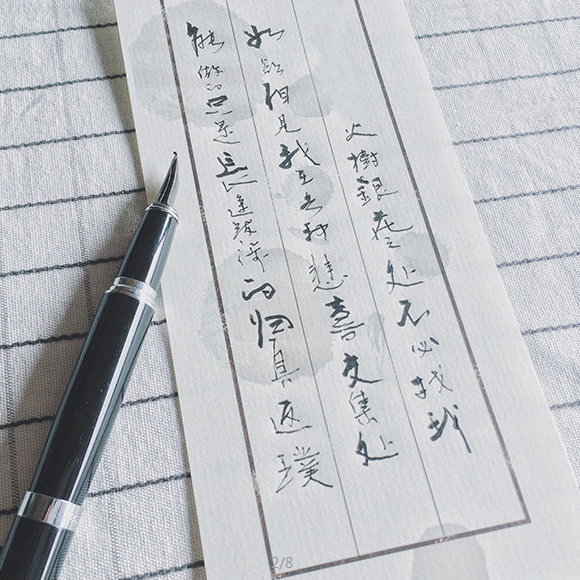 火樹銀花处不必找我
如欲相見我在各种悲喜交集处
能做的只是长途跋涉的归真返璞
2/8